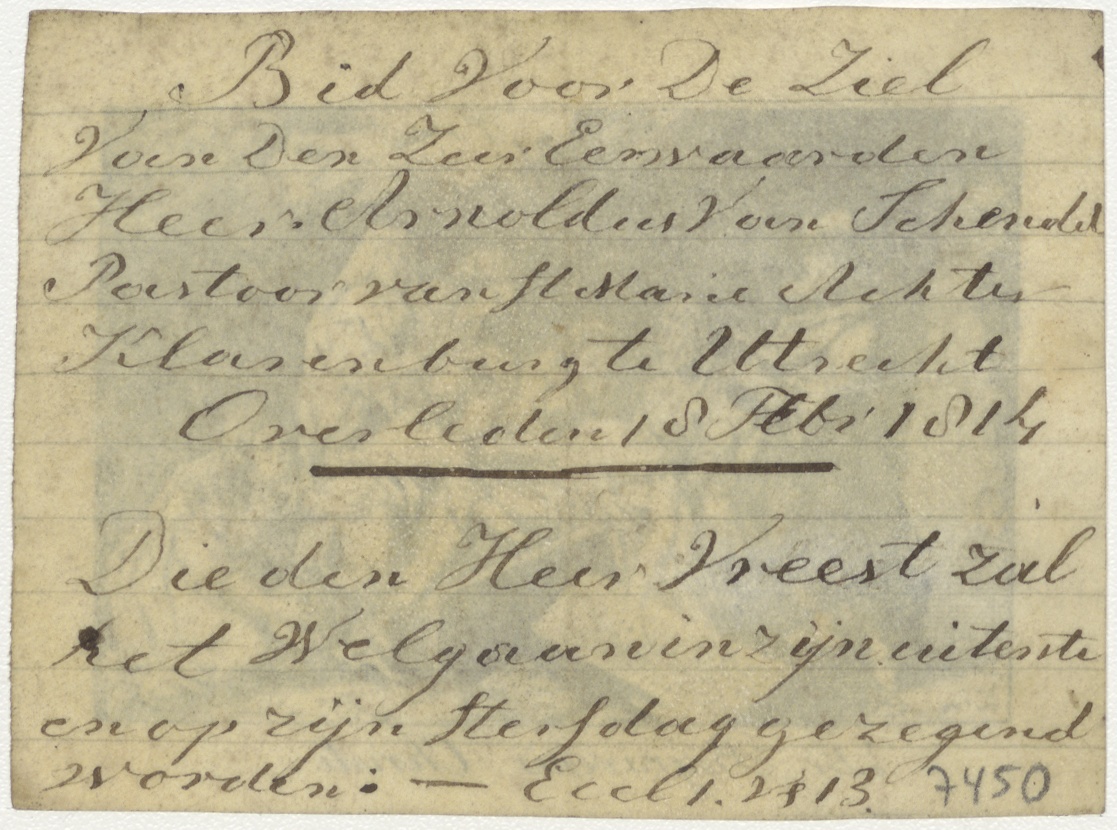 Bid Voor De Ziel
Van Den Zeer Eerwaarden
Heer Arnoldus Van Schendel
Pastoor van St Marie Achter
Klarenburg te Utrecht
Overleden 18 Febr 1814
Die den Heer Vreest zal
het Welgaan in zijn uiterste
en op zijn sterfdag gezegend
worden: — Eccl 1. vs 13.
7450